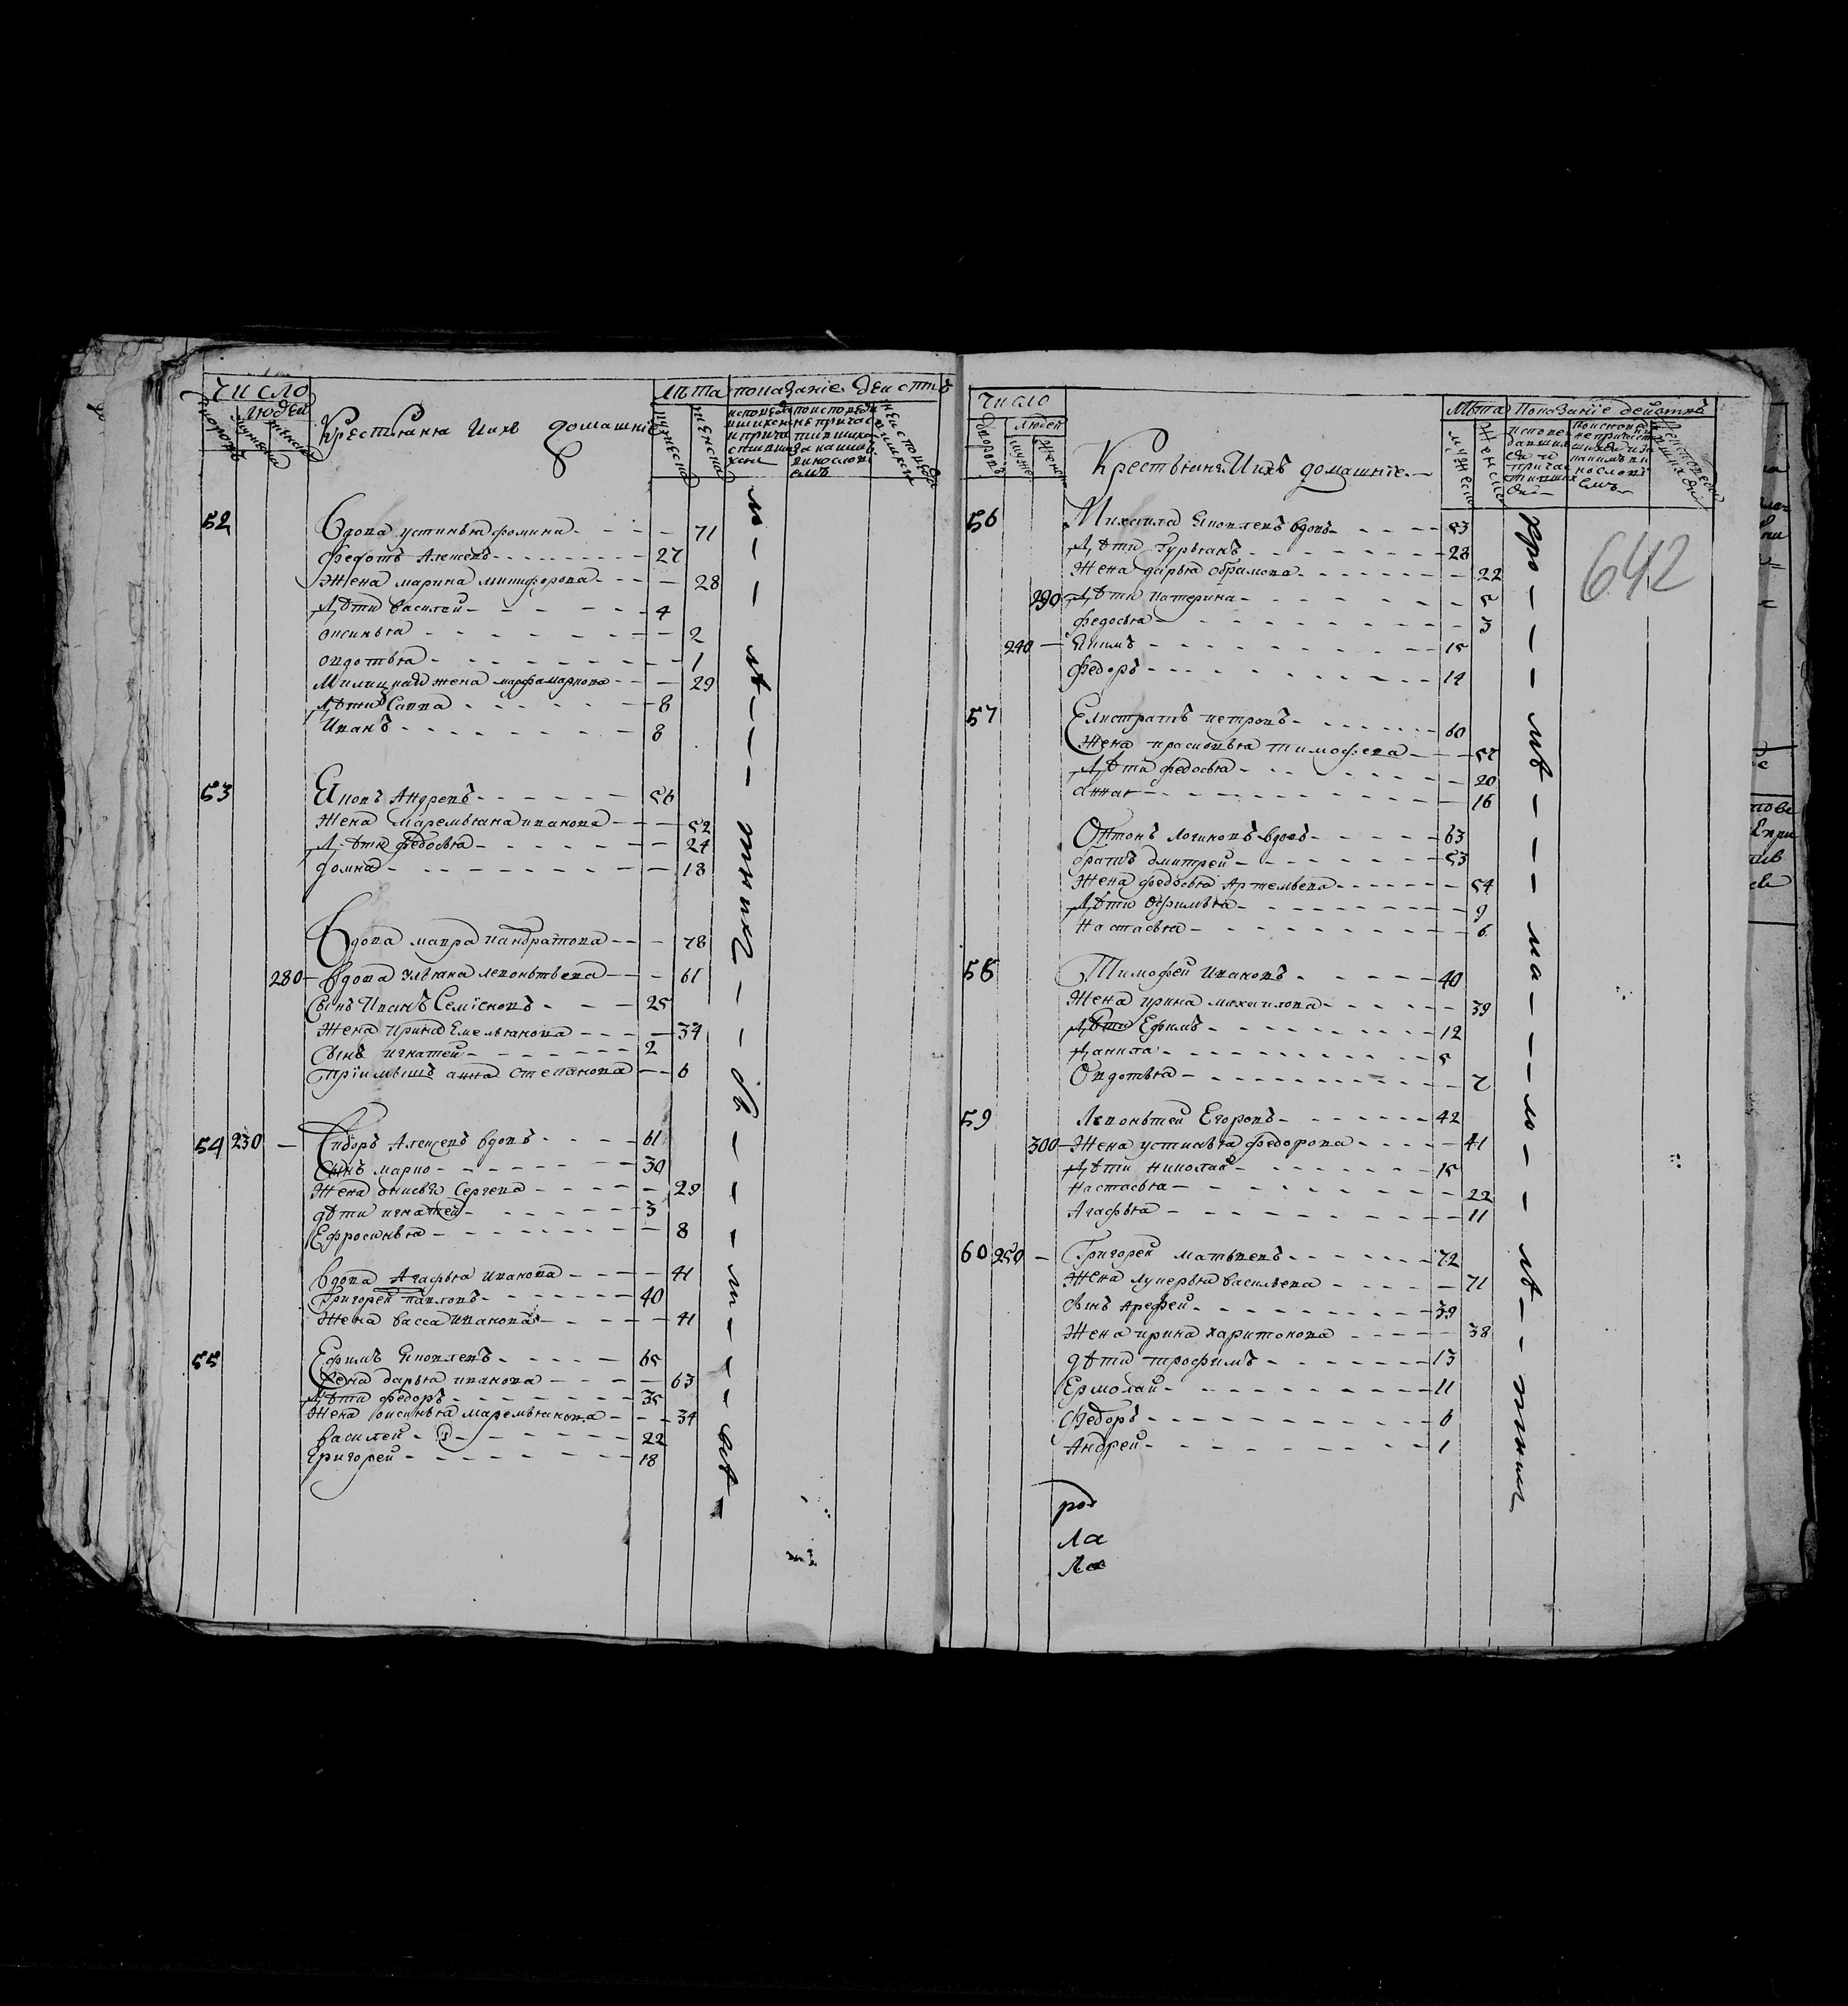 Число
Людей
дворовъ
мужеска
женска
Крестьяня ихъ домашніе
Лѣта
мужеска
женска
показаніе действъ
52 Вдова устинья фомина 71
федотъ Алексевъ 27
Жена марина микифорова 28
Дѣти василей 4
оксинья 2
овдотья 1
Милицкая жена марфа маркова 29
Дѣти Савва 8
Иванъ 8
53 Яковъ Андревъ 56
Жена маремьяна иванова 52
Дѣти федосья 24
домна 18
Вдова мавра кандратова 78
280 Вдова ульяна левонтьева 61
Сынъ Иванъ Семіоновъ 25
Жена ирина Емельянова 34
Сынъ игнатей 2
Пріимышъ анна степанова 6
54 230 Сидоръ Алексевъ вдовъ 61
Сынъ марко 30
Жена анисья Сергева 29
дѣти игнатей 3
Ефросинья 8
Вдова Агафья иванова 41
Григорей павловъ 40
Жена васса иванова 41
55 Ефимъ Яковлевъ 65
Жена дарья иванова 63
Дѣти федоръ 35
Жена оксинья маремьянова 34
василей 22
Григорей 18
Число
Людей
дворовъ
мужес
женск
Крестьяня Ихъ домашніе
Лѣта
мужеска
женска
Показаніе действъ
642
56 Михаила Яковлевъ вдовъ 53
Дѣти Гурьянъ 28
Жена дарья обрамова 22
290 Дѣти катерина 5
федосья 3
240 Якимъ 15
федоръ 14
57 Елистратъ петровъ 60
Жена прасковья тимофева 57
Дѣти федосья 20
анна 16
Онтонъ логиновъ вдовъ 63
братъ дмитрей 53
Жена федосья Артемьева 54
Дѣти офимья 9
Настасья 6
58 Тимофей ивановъ 40
Жена ирина михаилова 39
Дѣти Ефимъ 12
Данила 5
Овдотья 7
59 Левонтей Егоровъ 42
300 Жена устинья федорова 41
Дѣти николай 15
Настасья 22
Агафья 11
60 250 Григорей матвеевъ 72
Жена лукерья васильева 71
Сынъ Арефей 39
Жена ирина харитонова 38
дѣти трофимъ 13
Ермолай 11
Федоръ 6
Андрей 1